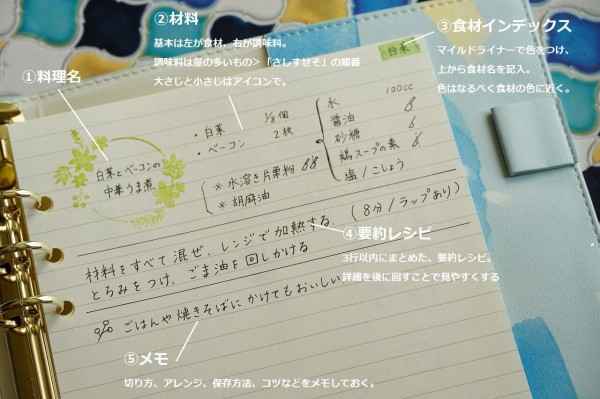 ②材料
基本は左が食材、右が調味料。
調味料は量の多いもの>「さしすせそ」の順番
大さじと小さじはアイコンで。
③食材インデックス
マイルドライナーで色をつけ、
上から食材名を記入。
色はなるべく食材の色に近く。
①料理名
白菜
白菜とベーコンの
中華うま煮
・白菜 1/8個
・ベーコン 2枚
※水溶き片栗粉
※胡麻油
水 100cc
醤油
砂糖
鶏スープの素
塩/こしょう
材料をすべて混ぜ、レンジで加熱する (8分/ラップあり)
とろみをつけ、ごま油を回しかける
④要約レシピ
3行以内にまとめた、要約レシピ。
詳細を後に回すことで見やすくする
ごはんや焼きそばにかけてもおいしい
⑤メモ
切り方、アレンジ、保存方法、コツなどをメモしておく。